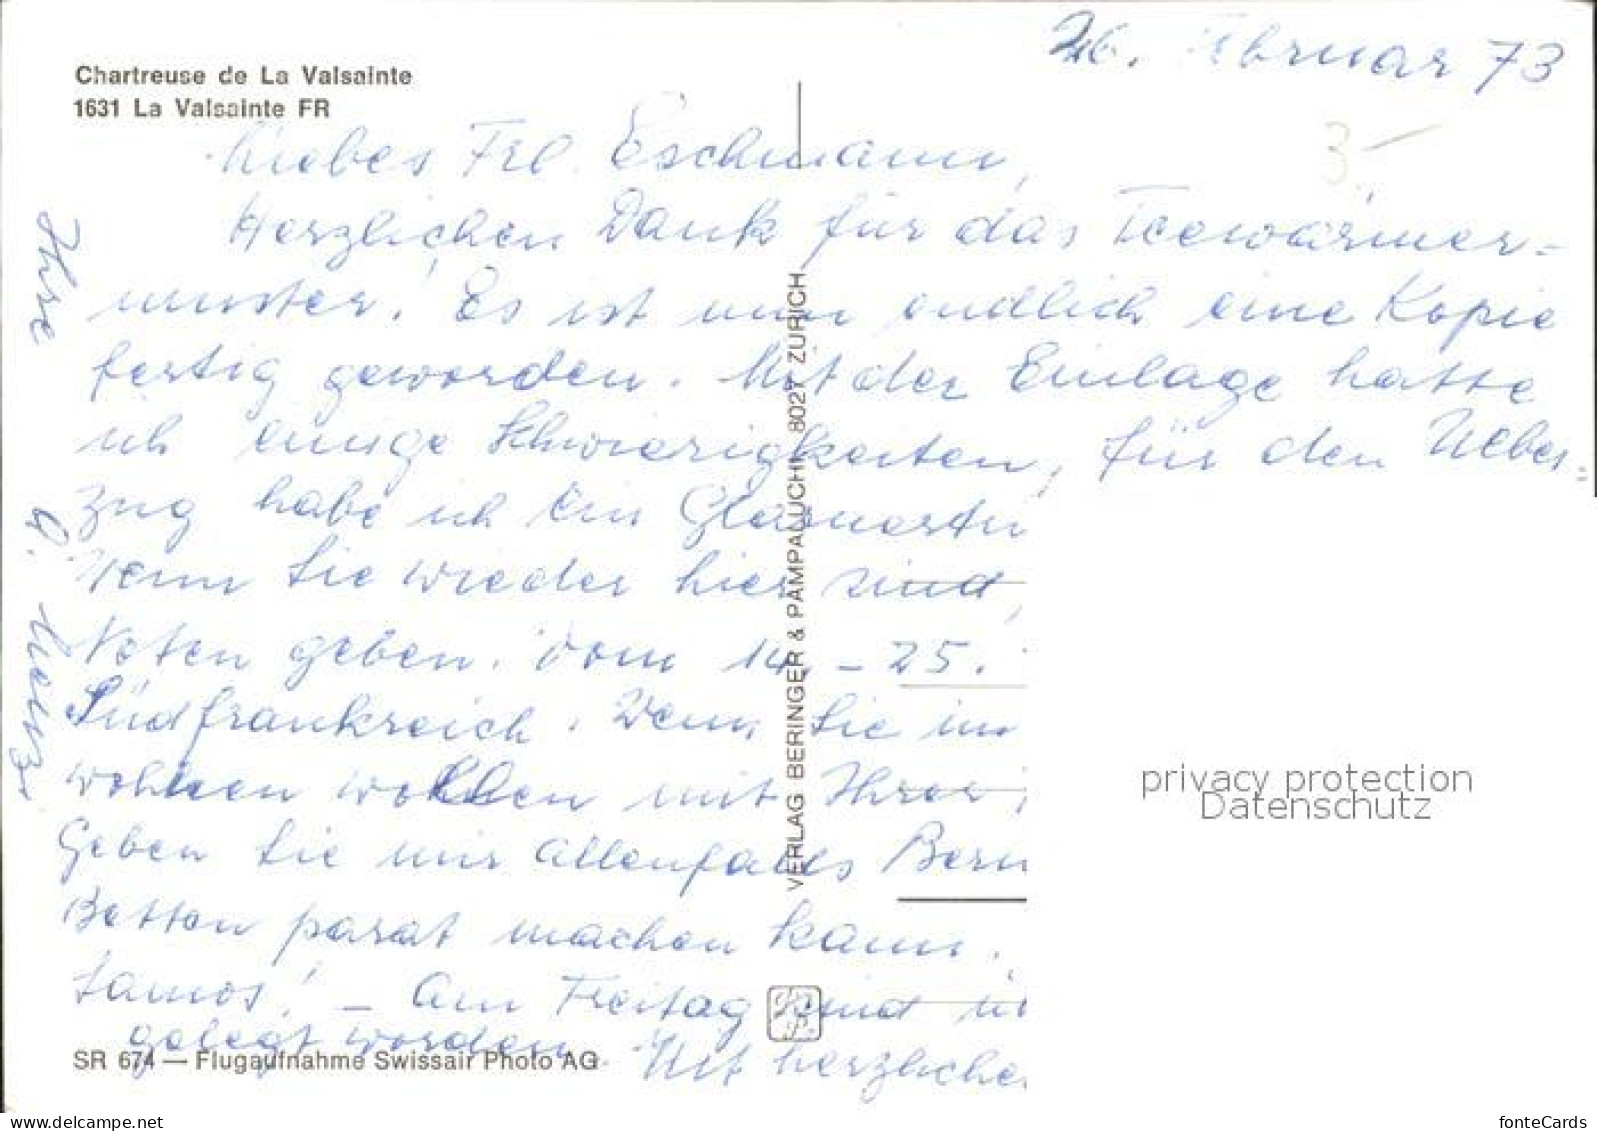 26. Februar 73
Chartreuse de La Valsainte
1631 La Valsainte FR
3.-
Liebes Frl. Eschmann,
Herzlichen Dank für das Teewärmer=
muster! Es ist nun endlich eine Kopie
fertig geworden. Mit der Einlage hatte
ich einige Schwierigkeiten, für den Ueber=
zug habe ich ein
Wenn Sie wieder hier sind,
Noten geben. Vom 14. - 25.
Südfrankreich. Wenn Sie im
wohnen wollen mit Ihrer
Geben Sie mir allenfalls Beri
Betten parat machen kann.
famos! - Am Freitag sind
gelegt worden. Mit herzliche
Ihre
VERLAG BERINGER & PAMPALUCHI 8027 ZÜRICH
SR 674 — Flugaufnahme Swissair Photo AG
privacy protection
Datenschutz
www.ansichtskartenhandel.com
fonteCards